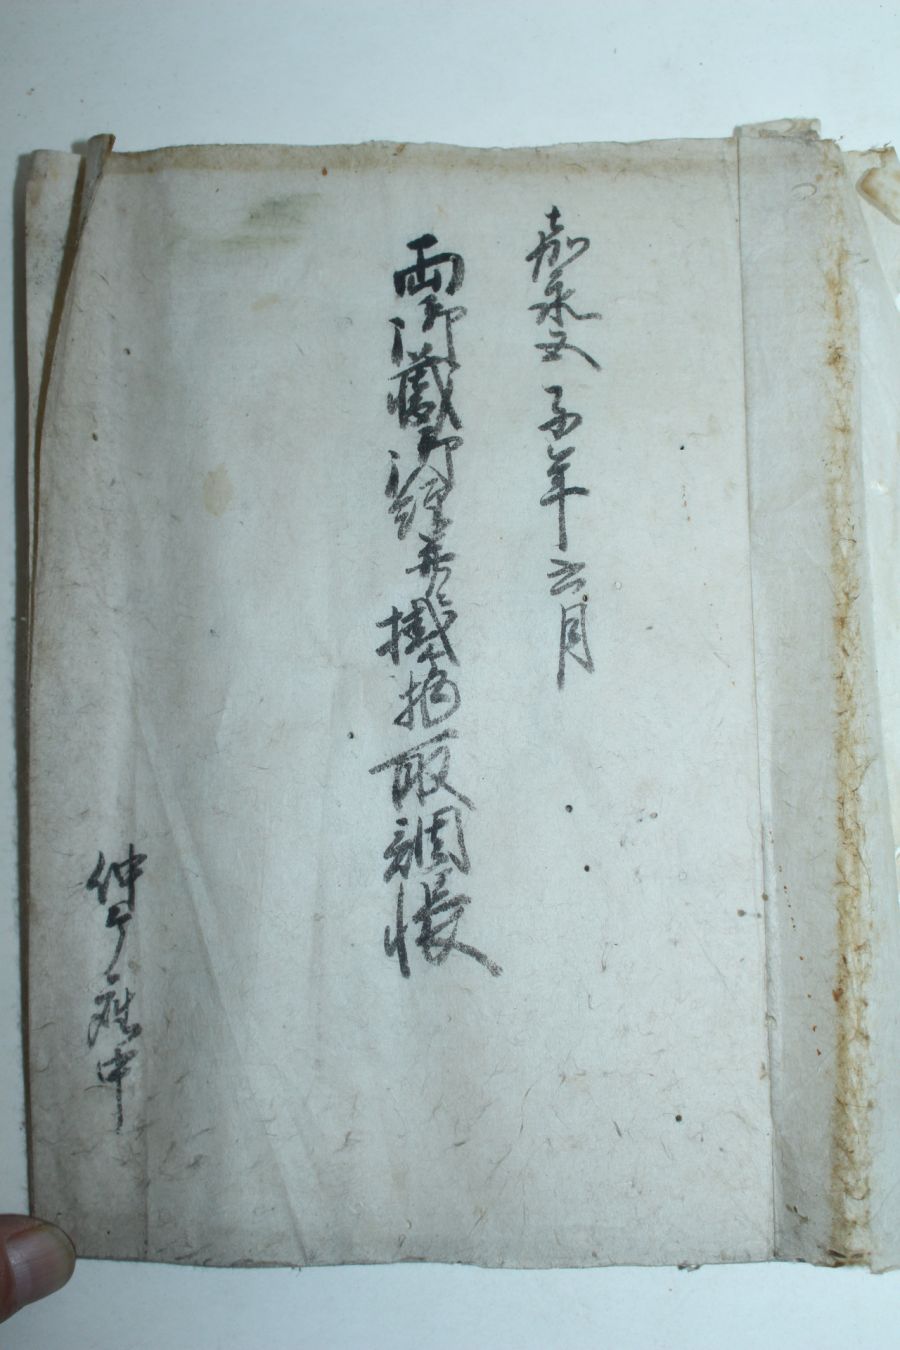 嘉永五 子年 六月
両御蔵御経并掛物取調帳
仲ケ庄中